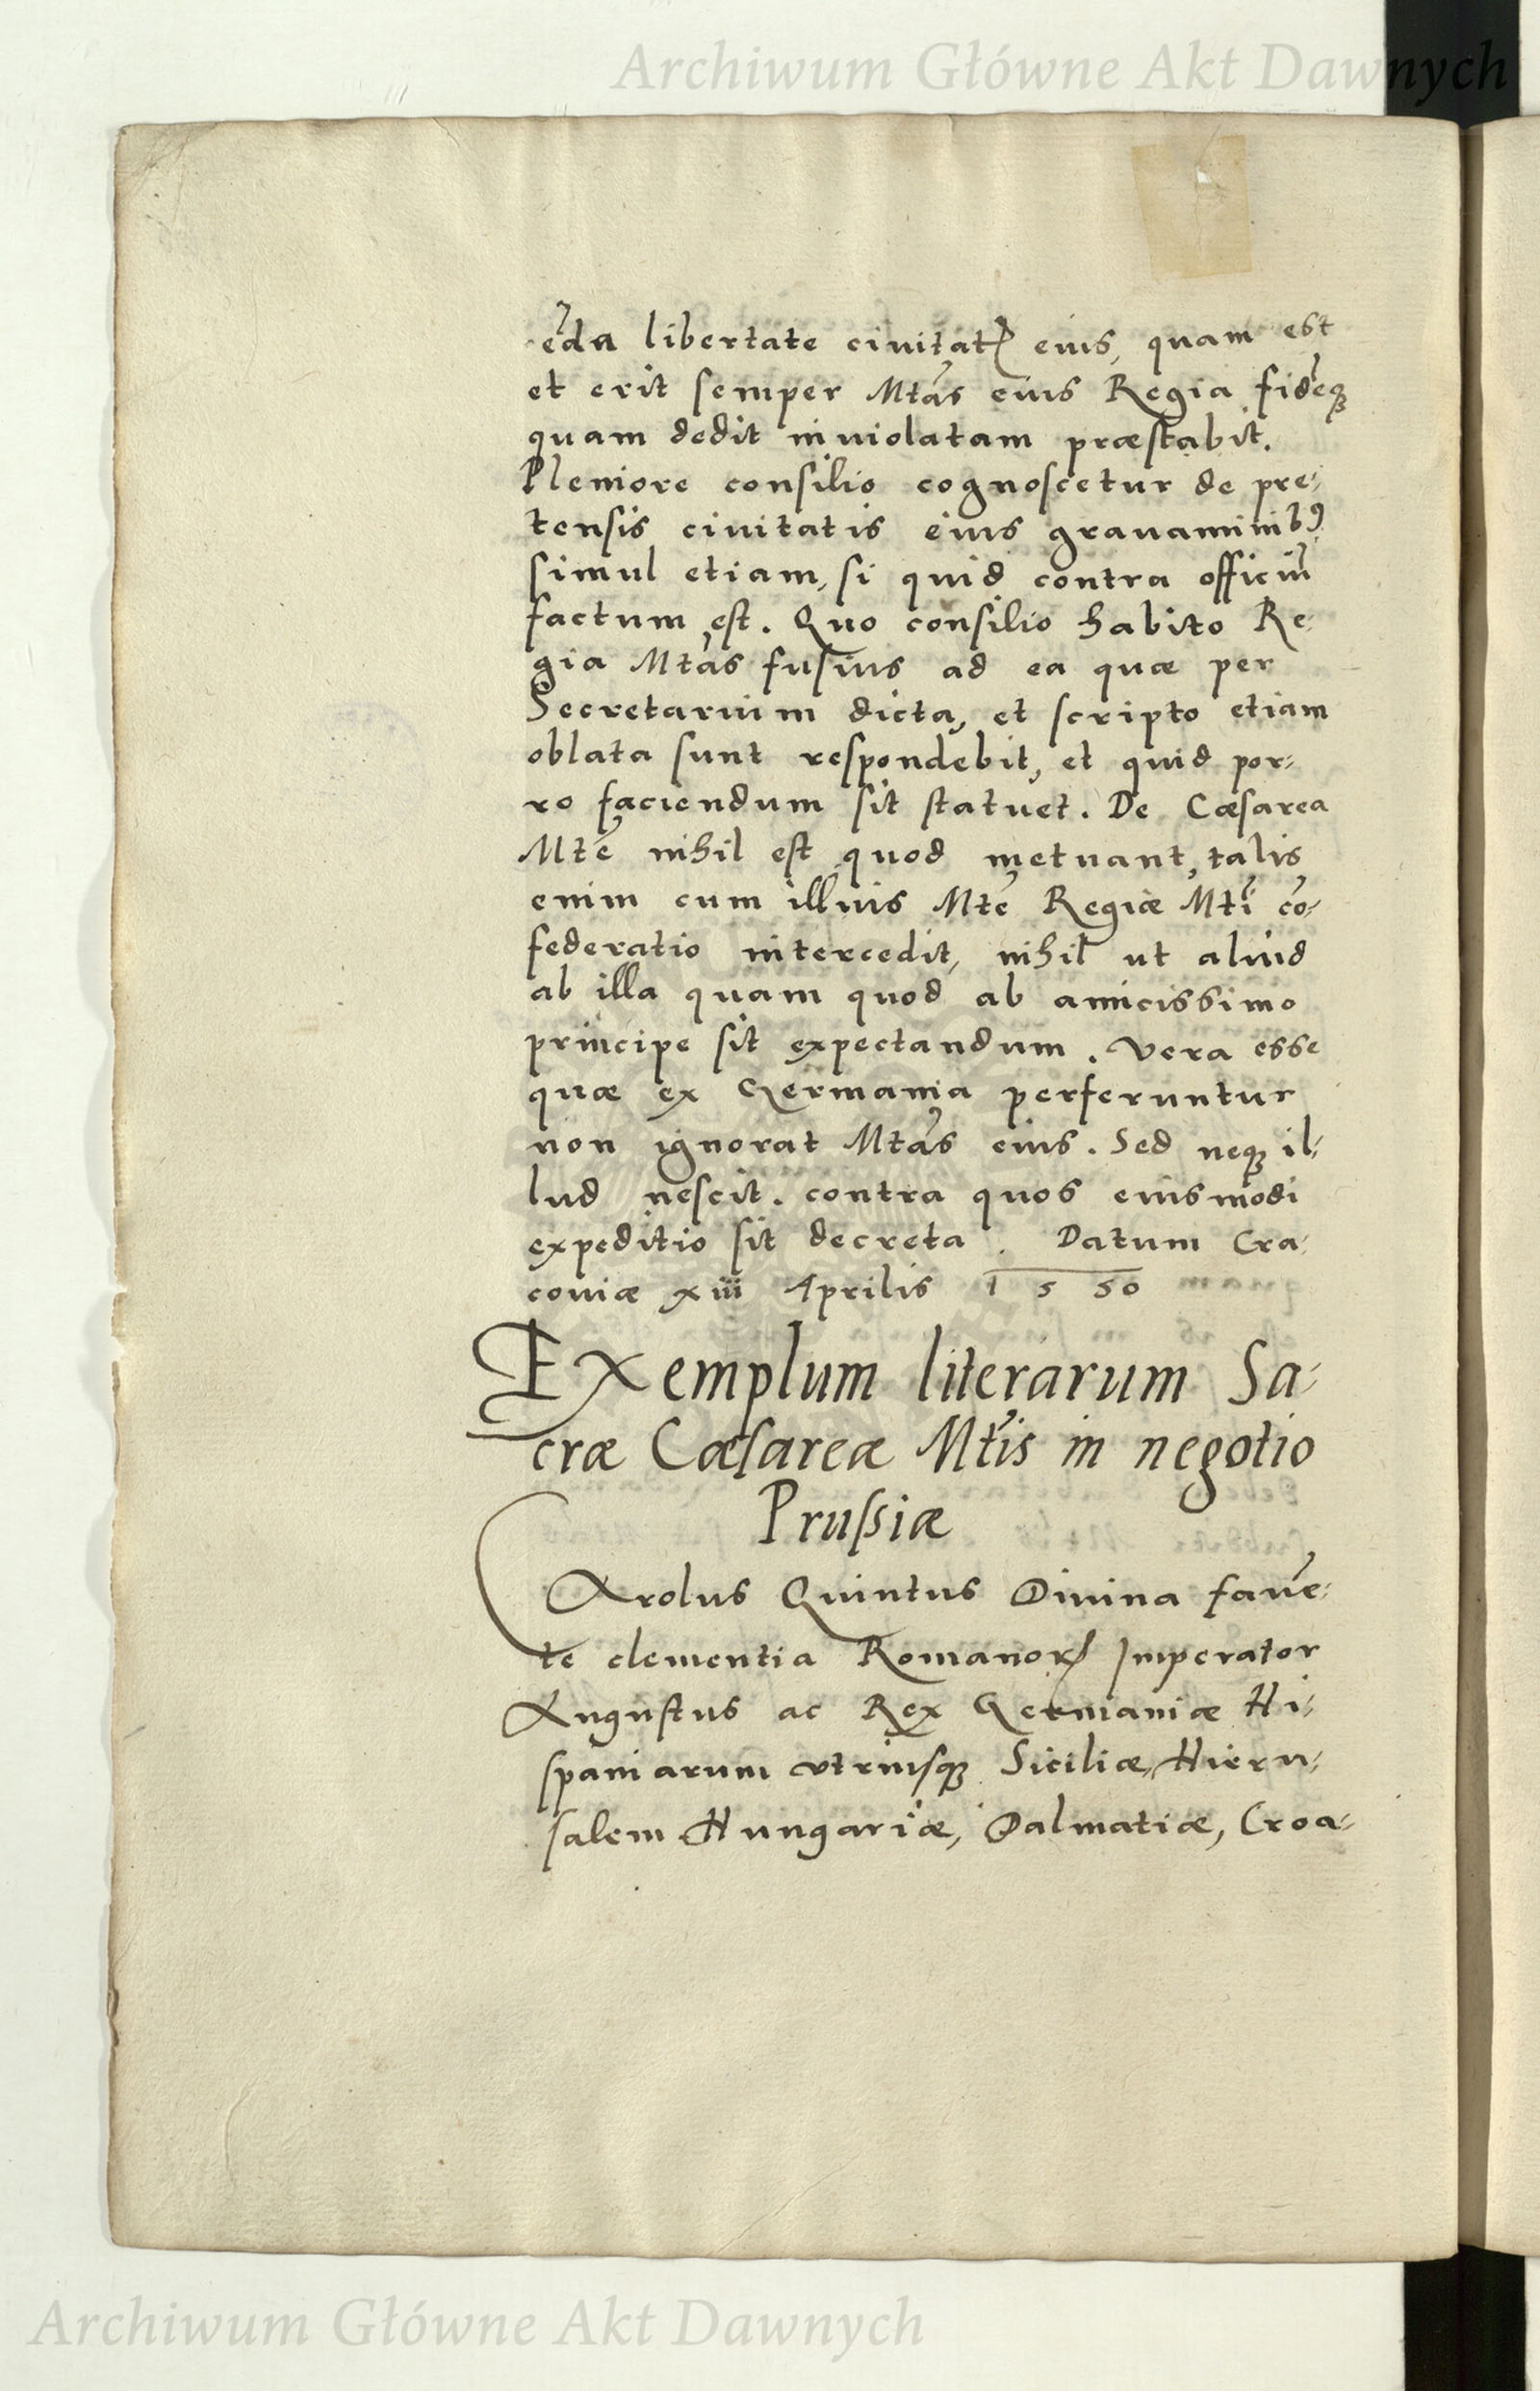 Archiwum Główne Akt Dawnych
ẽda libertate ciuitatꝭ eius, quam est
et erit semper Mtãs eius Regia fidẽqꝫ
quam dedit inuiolatam præstabit.
Pleniore consilio cognoscetur de pre-
tensis ciuitatis eius grauaminibꝰ
simul etiam, si quid contra officiũ
factum est. Quo consilio habito Re-
gia Mtãs fusius ad ea quæ per
Secretarium dicta, et scripto etiam
oblata sunt respondebit, et quid por-
ro faciendum sit statuet. De Cæsarea
Mtẽ nihil est quod metuant, talis
enim cum illius Mtẽ Regiæ Mtĩ cõ-
federatio intercedit, nihil ut aliud
ab illa quam quod ab amicissimo
principe sit expectandum. Vera esse
quæ ex Germania perferuntur
non ignorat Mtãs eius. Sed neqꝫ il-
lud nescit. contra quos eiusmodi
expeditio sit decreta. Datum Cra-
couiæ xiii Aprilis 1550
Exemplum literarum Sa-
cræ Cæsareæ Mtĩs in negotio
Prussiæ
Carolus Quintus Diuina fauẽ-
te clementia Romanoꝝ Imperator
Augustus ac Rex Germaniæ Hi-
spaniarum vtriusqꝫ Siciliæ, Hieru-
salem Hungariæ, Dalmatiæ, Croa-
Archiwum Główne Akt Dawnych